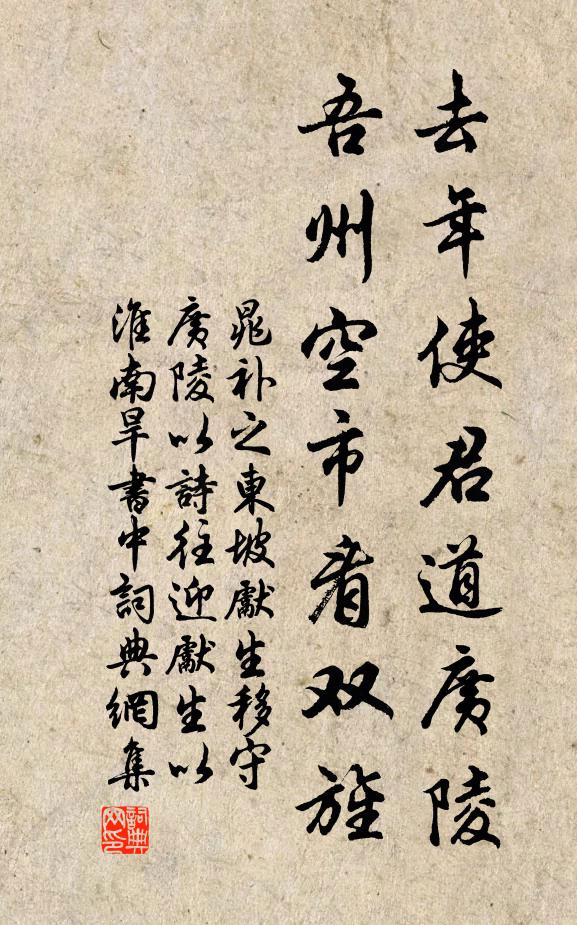 去年使君道廣陵
吾州空市看双旌
晁补之東坡獻生移守
廣陵以詩往迎獻生以
淮南旱書中詞典網集
詞典網印